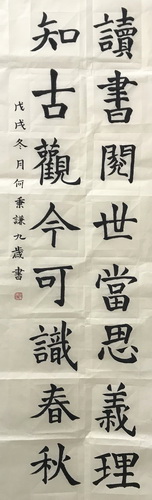 讀書閱世當思義理
知古觀今可識春秋
戊戌冬月何秉謙九歲書